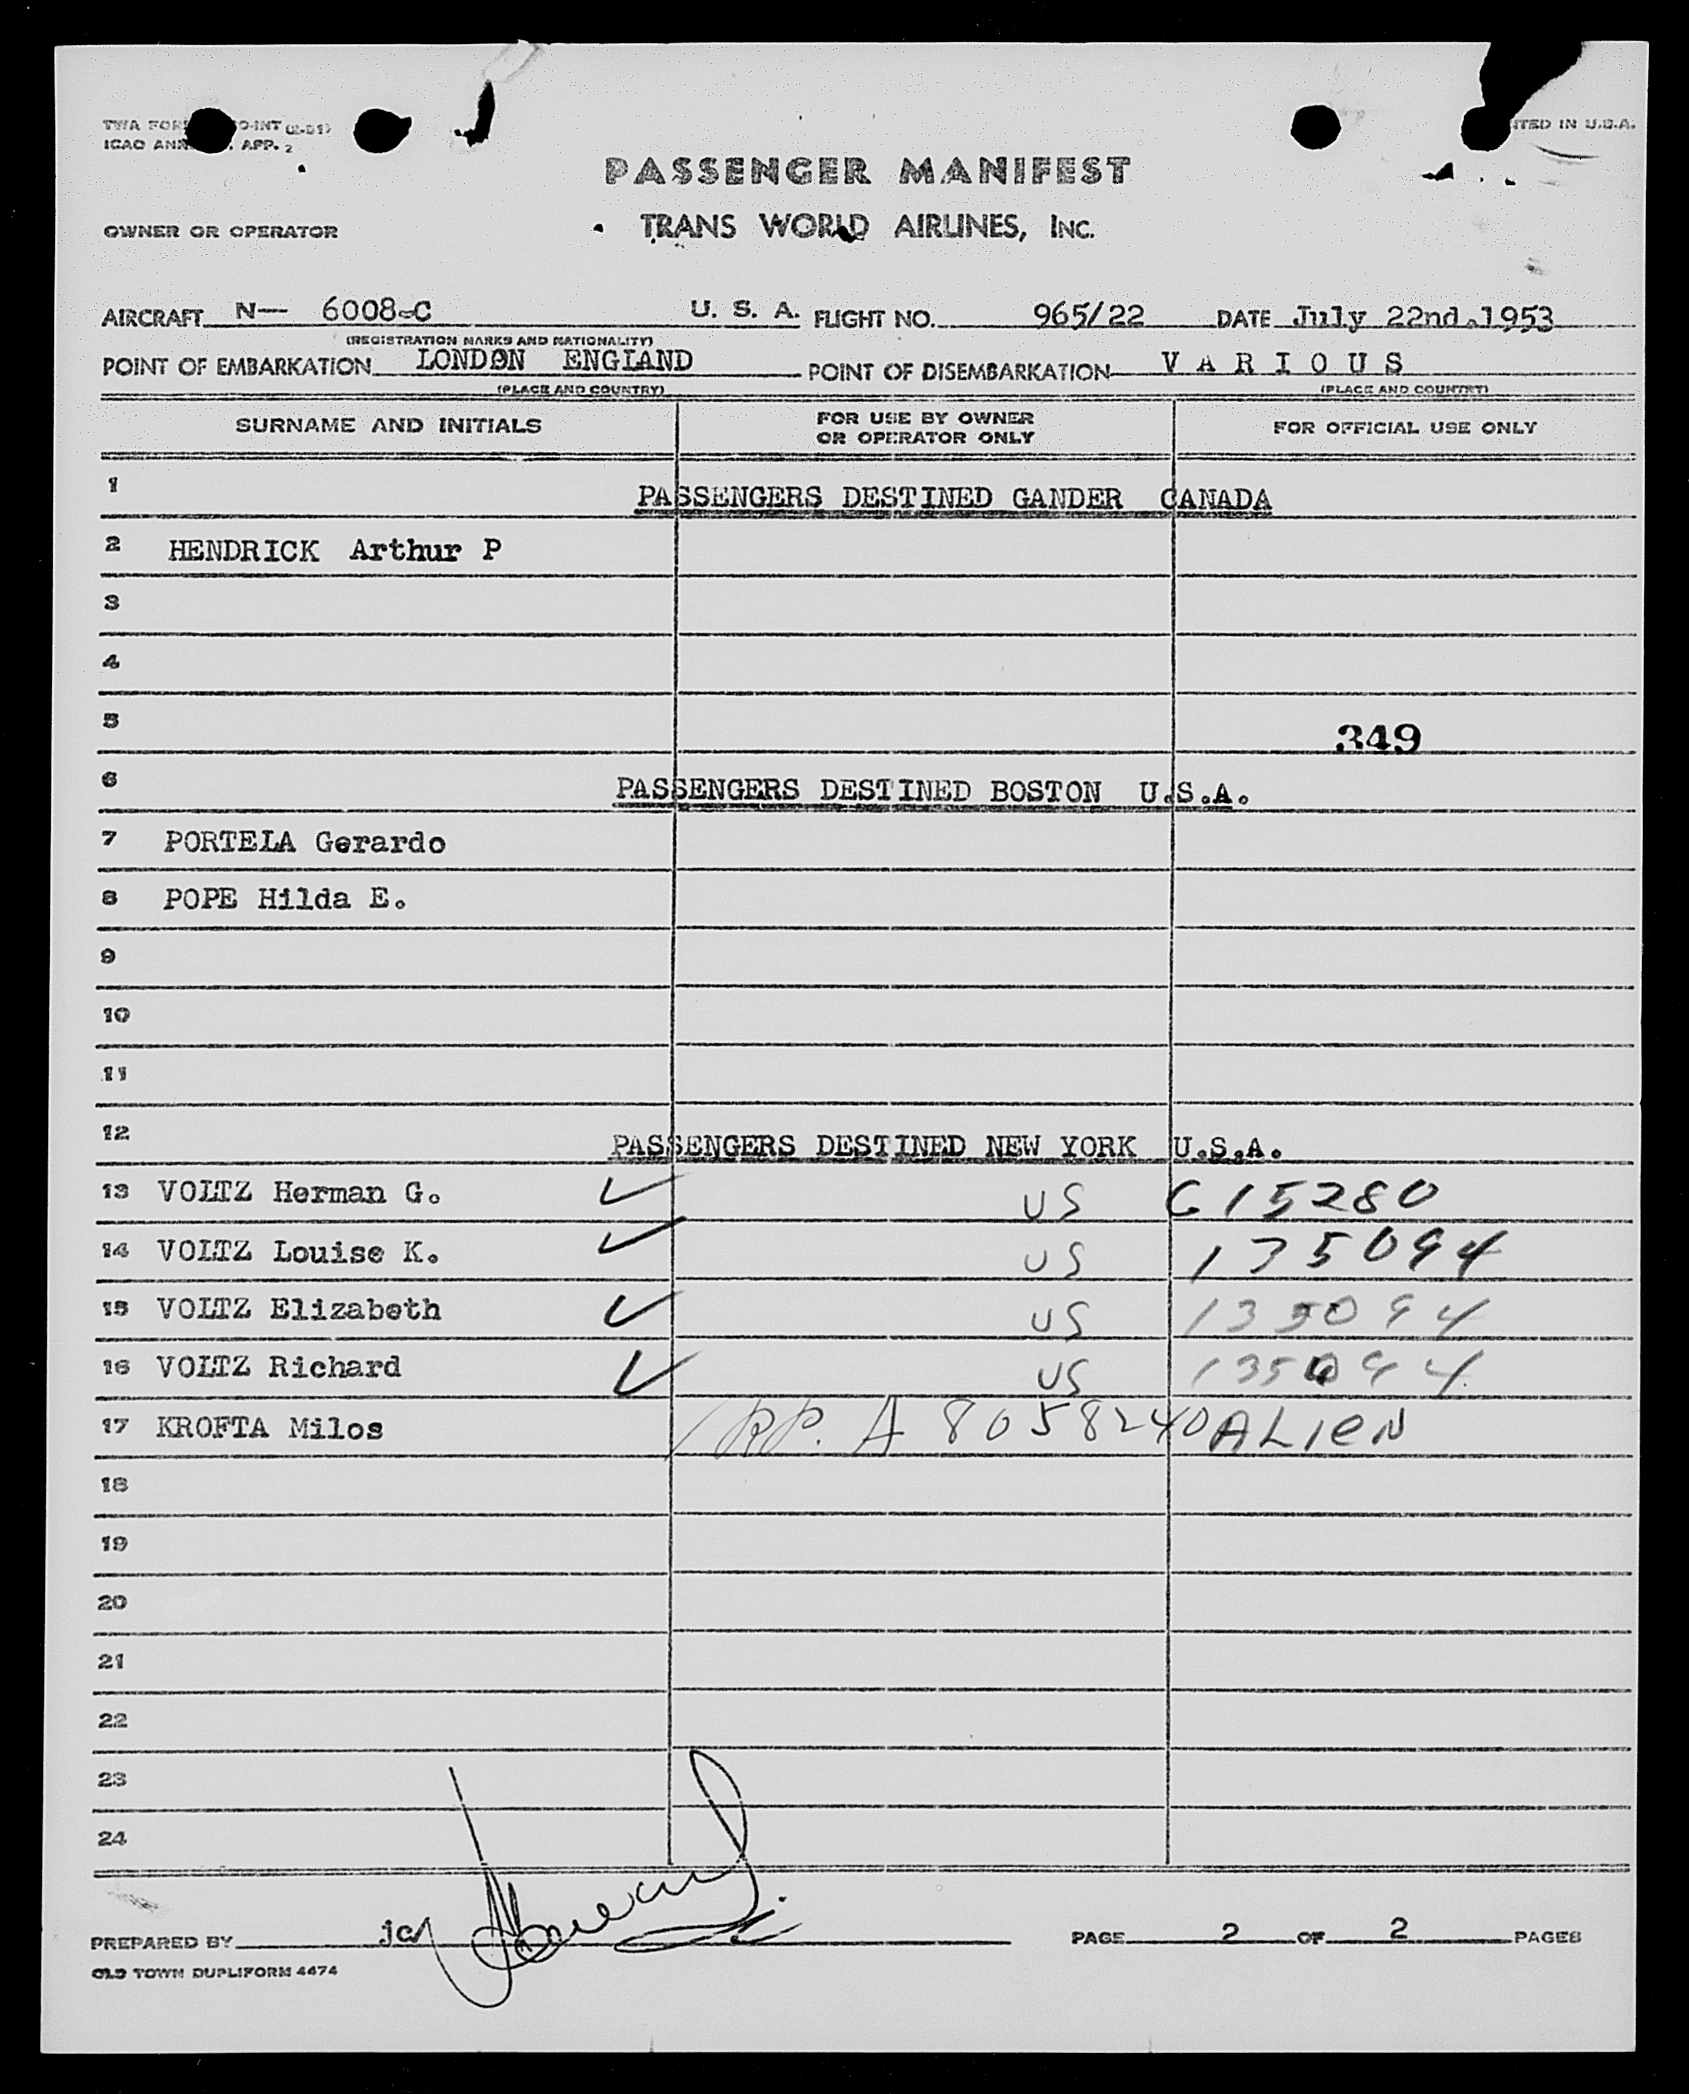 TWA FOR O-INT (2-51)
ICAO ANN . APP. 2
TED IN U.S.A.
PASSENGER MANIFEST
OWNER OR OPERATOR TRANS WORLD AIRLINES, INC.
AIRCRAFT N— 6008-C U. S. A. FLIGHT NO. 965/22 DATE July 22nd.1953
(REGISTRATION MARKS AND NATIONALITY)
POINT OF EMBARKATION LONDON ENGLAND POINT OF DISEMBARKATION V A R I O U S
(PLACE AND COUNTRY) (PLACE AND COUNTRY)
SURNAME AND INITIALS FOR USE BY OWNER OR OPERATOR ONLY FOR OFFICIAL USE ONLY
1 PASSENGERS DESTINED GANDER CANADA
2 HENDRICK Arthur P
3
4
5 349
6 PASSENGERS DESTINED BOSTON U.S.A.
7 PORTELA Gerardo
8 POPE Hilda E.
9
10
11
12 PASSENGERS DESTINED NEW YORK U.S.A.
13 VOLTZ Herman G. ✓ US G 15280
14 VOLTZ Louise K. ✓ US 135094
15 VOLTZ Elizabeth ✓ US 135094
16 VOLTZ Richard ✓ US 135094
17 KROFTA Milos PP. A 8058240 ALIEN
18
19
20
21
22
23
24
PREPARED BY jc PAGE 2 OF 2 PAGES
OLD TOWN DUPLIFORM 4474